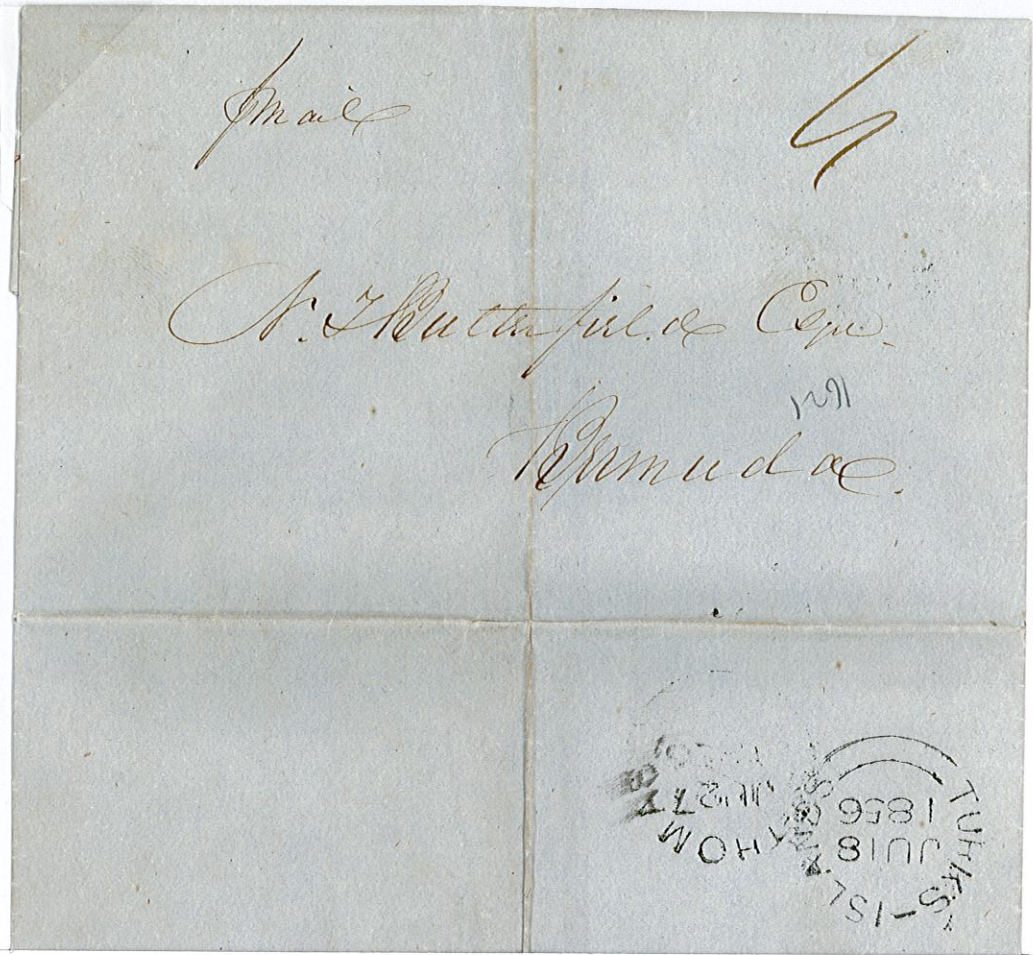 p mail
4
N. T. Butterfield Esqre.
Bermuda.
TURKS-ISLANDS
JU 18
1856
ST THOMAS
JU 27